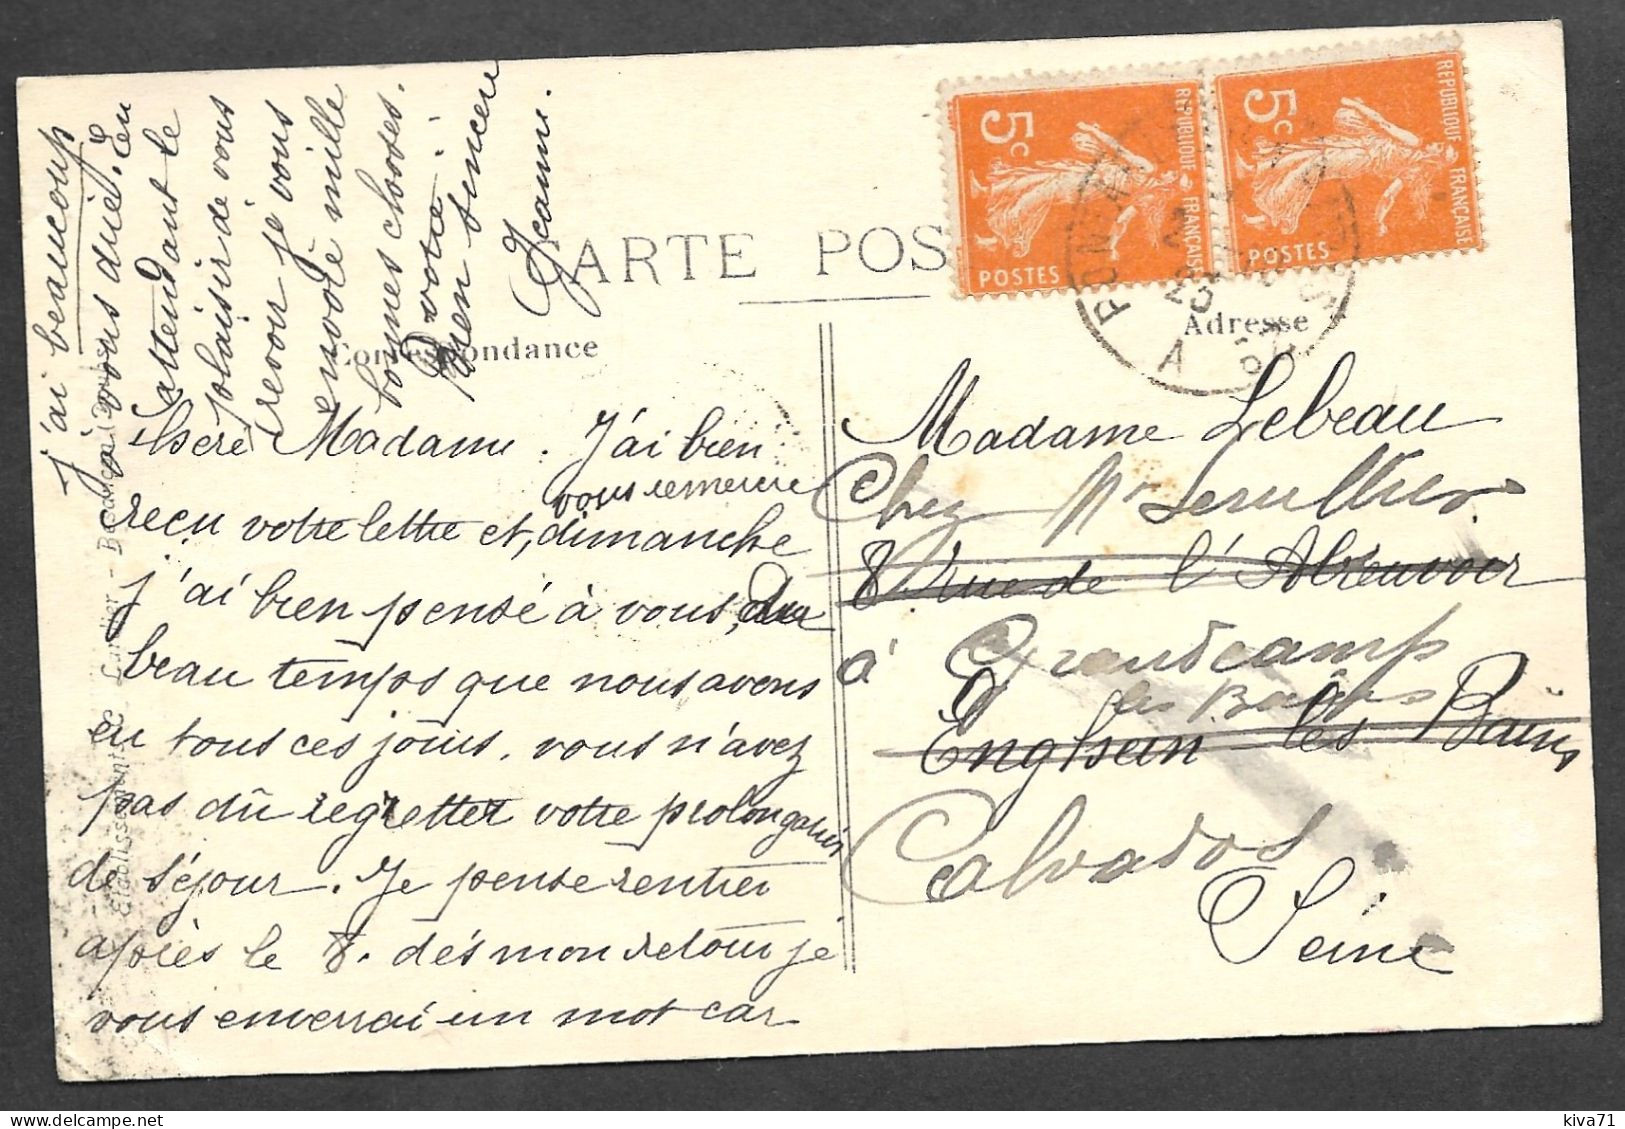 CARTE POS
Correspondance
Adresse
5c
REPUBLIQUE FRANÇAISE
POSTES
5c
REPUBLIQUE FRANÇAISE
POSTES
A
Chère Madame. J'ai bien
vous remercie
reçu votre lettre et, dimanche
j'ai bien pensé à vous, du
beau temps que nous avons
eu tous ces jours. vous n'avez
pas dû regretter votre prolongation
de séjour. Je pense rentrer
après le 8. dès mon retour je
vous enverrai un mot car
j'ai beaucoup
à vous dire. En
attendant le
plaisir de vous
revoir je vous
envoie mille
bonnes choses.
votre
bien sincère
Jeanne.
Madame Lebeau
Chez Mr
8 rue de l'Abreuvoir
à Grandcamp
les Bains
Enghein les Bains
Calvados
Seine
Etablissements C. Lardier - Besançon
kiva71